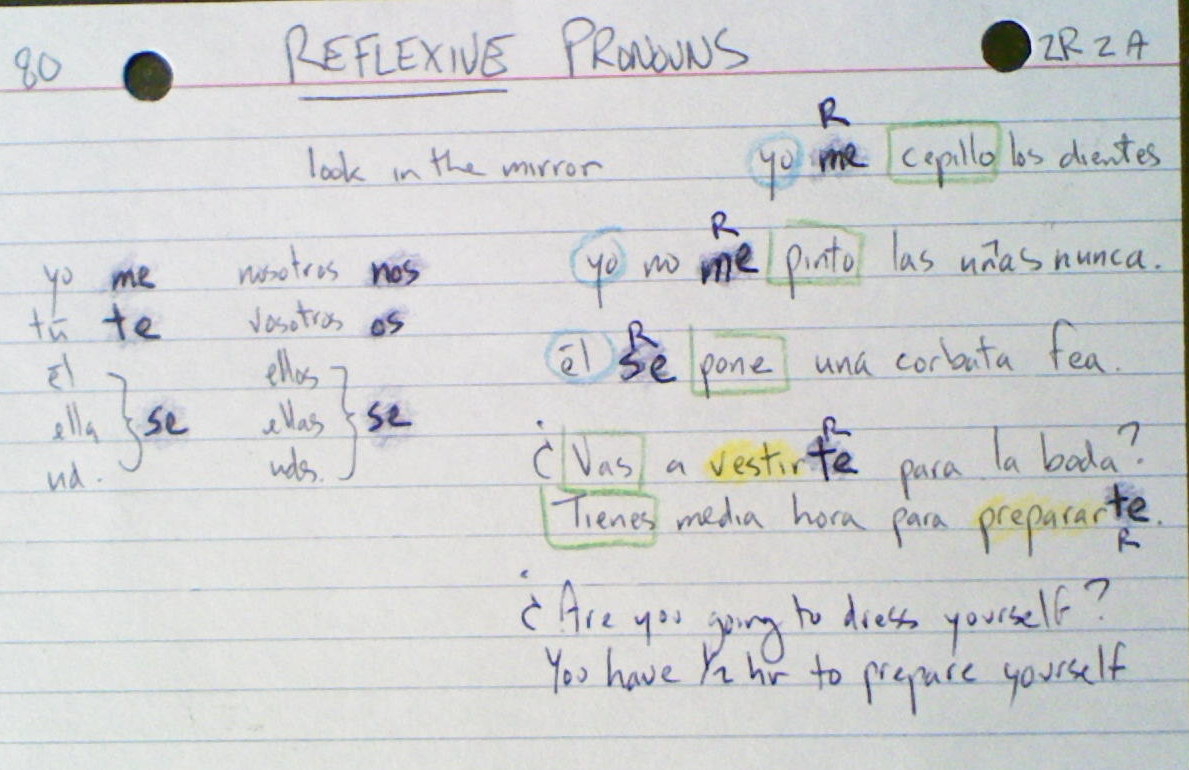 80 REFLEXIVE PRONOUNS 2R2A
R
look in the mirror yo me cepillo los dientes
R
yo no me pinto las uñas nunca.
yo me nosotros nos
tú te vosotros os
él ellos
ella } se ellas } se
ud. uds.
R
él se pone una corbata fea.
R
¿Vas a vestirte para la boda?
Tienes media hora para prepararte.
R
¿Are you going to dress yourself?
You have 1/2 hr to prepare yourself